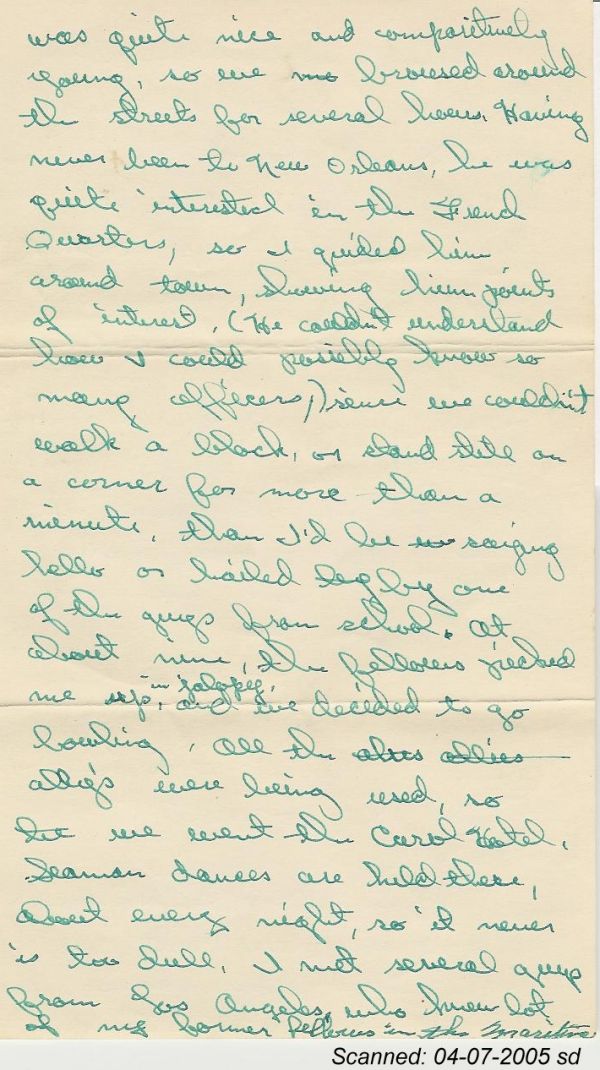 was quite nice and comparitively
young, so we mo browsed around
the streets for several hours. Having
never been to New Orleans, he was
quite interested in the French
Quarters, so I guided him
around town, showing him points
of interest. (He couldn't understand
how I could possibly know so
many officers,) since we couldn't
walk a block, or stand still on
a corner for more than a
minute, than I'd be saying
hello or hailed by one
of the guys from school. At
about nine, the fellows picked
me up, "in jalopy," and we decided to go
bowling. All the allies
alleys were being used, so
we went the Carol Hotel.
Seaman dances are held there,
about every night, so it never
is too dull. I met several guys
from Los Angeles, who knew lot
of my former fellows in the Maritime
Scanned: 04-07-2005 sd